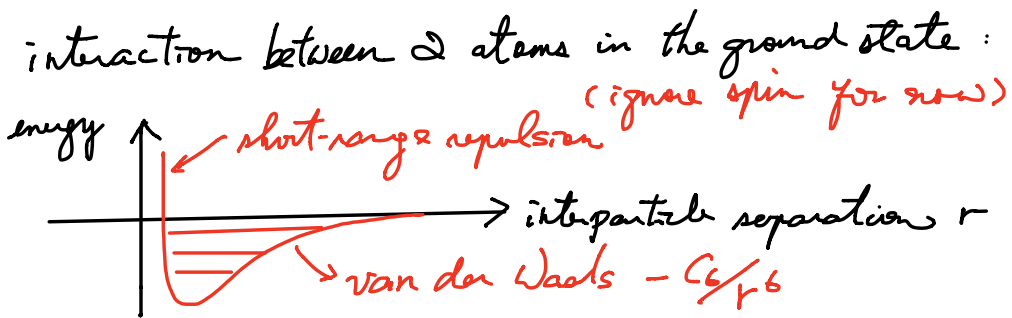 interaction between 2 atoms in the ground state :
(ignore spin for now)
energy
short-range repulsion
interparticle separation r
van der Waals - C6/r6